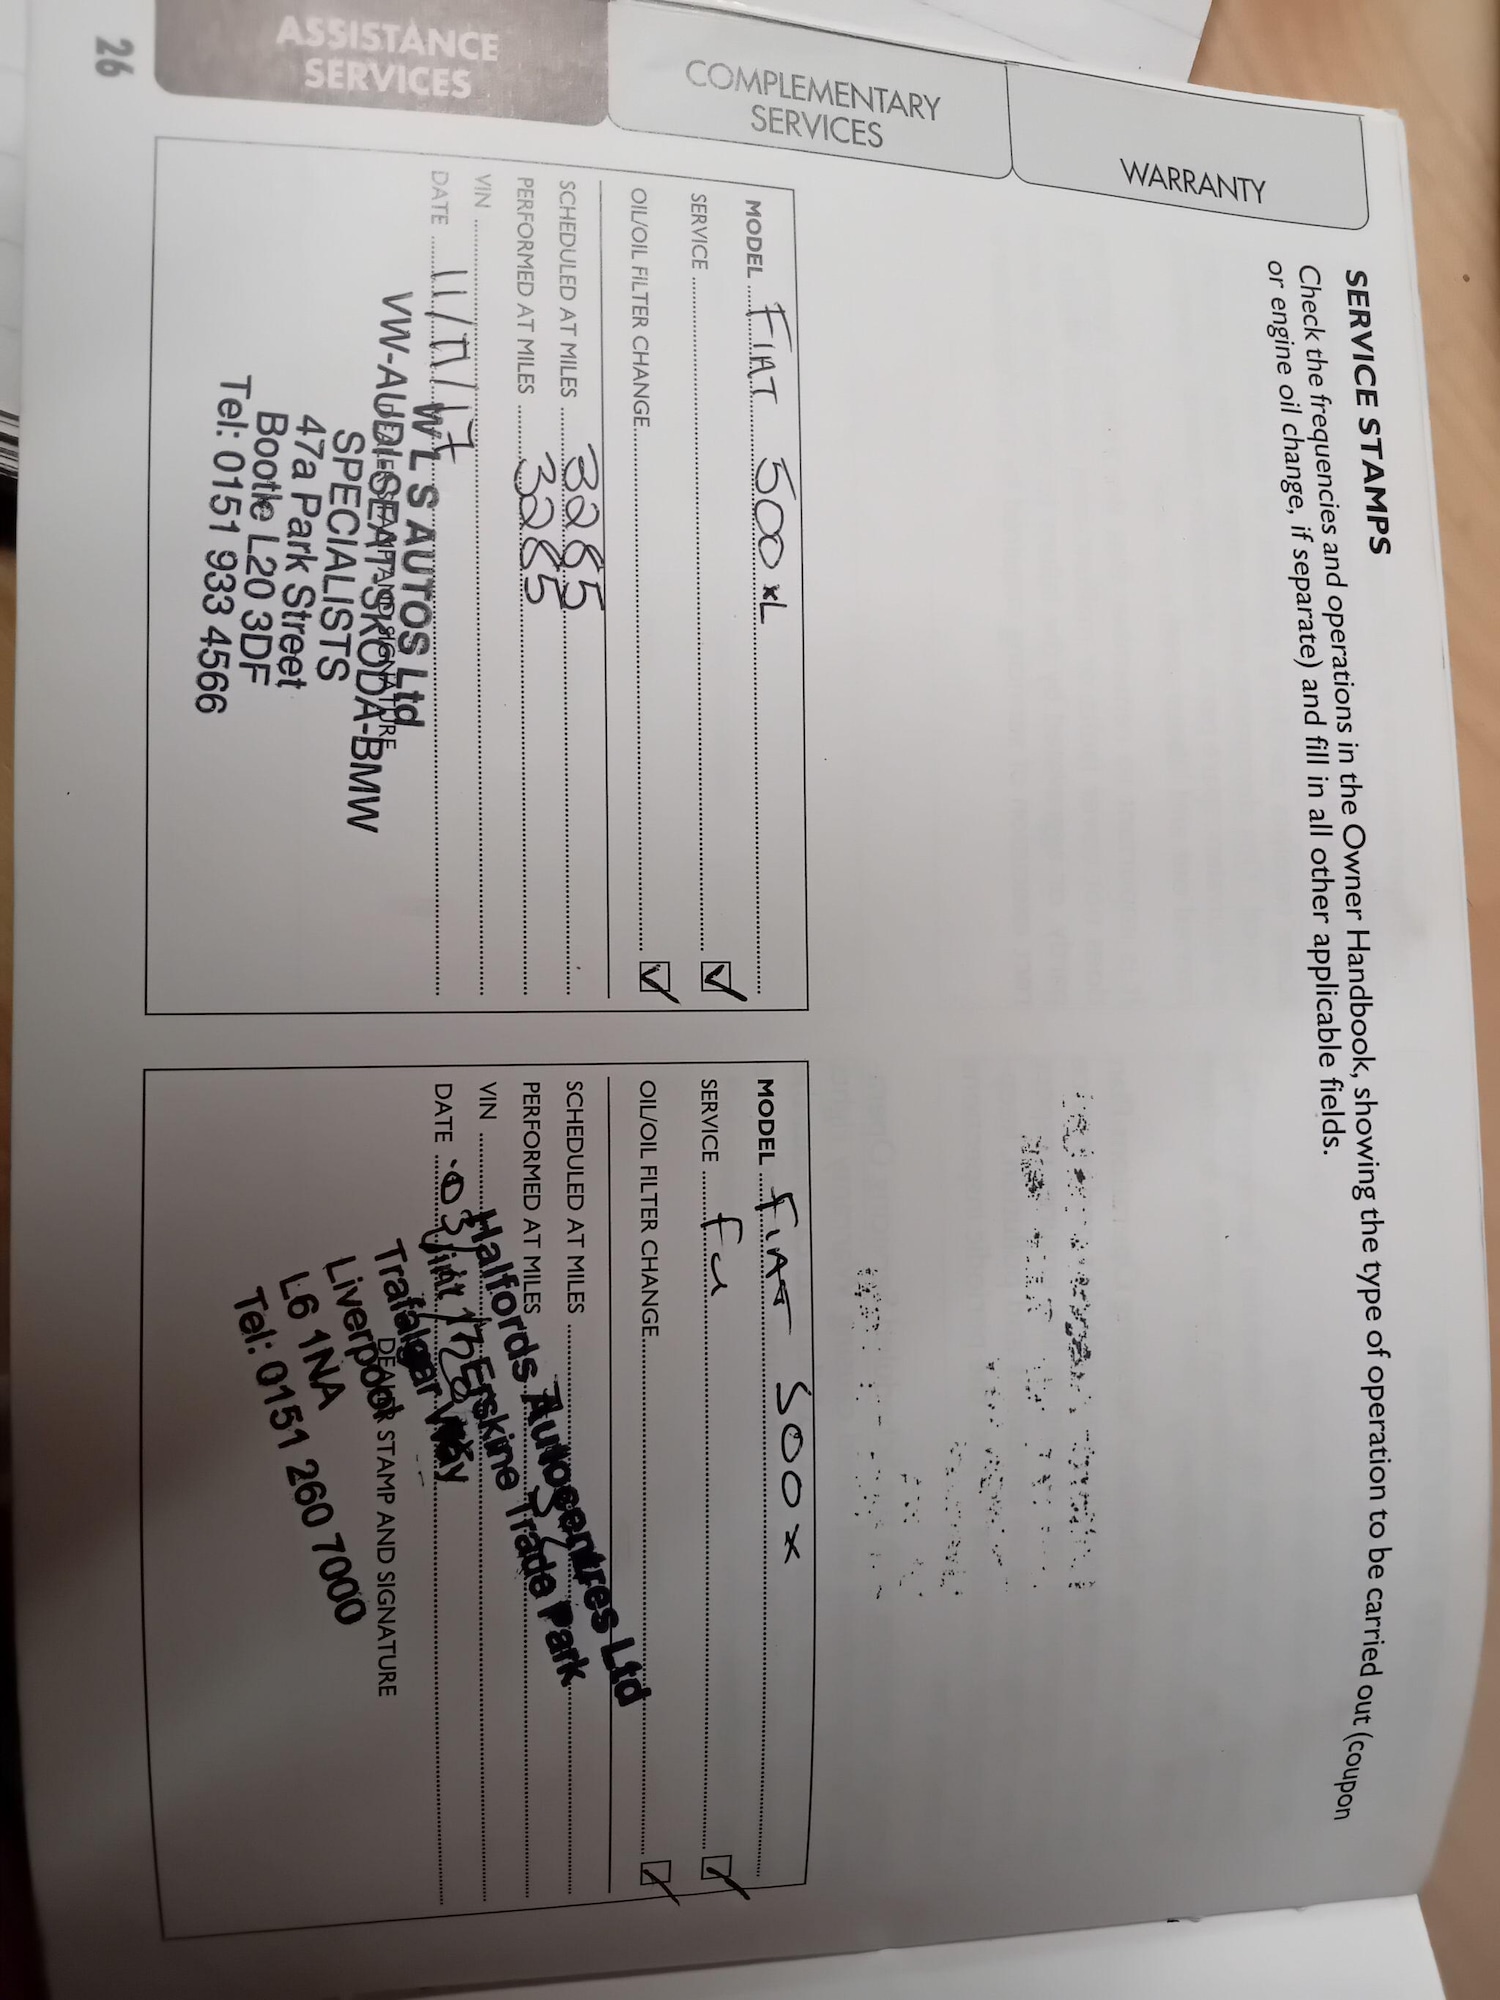 WARRANTY
COMPLEMENTARY
SERVICES
ASSISTANCE
SERVICES
26
SERVICE STAMPS
Check the frequencies and operations in the Owner Handbook, showing the type of operation to be carried out (coupon
or engine oil change, if separate) and fill in all other applicable fields.
MODEL FIAT 500 XL
SERVICE
OIL/OIL FILTER CHANGE
SCHEDULED AT MILES 3285
PERFORMED AT MILES 3285
VIN
DATE 11/11/17
W L S AUTOS Ltd
VW-AUDI-SEAT-SKODA-BMW
SPECIALISTS
47a Park Street
Bootle L20 3DF
Tel: 0151 933 4566
MODEL FIAT 500X
SERVICE
OIL/OIL FILTER CHANGE
SCHEDULED AT MILES
PERFORMED AT MILES
VIN
DATE
Halfords Autocentres Ltd
Erskine Trade Park
Trafalgar Way
Liverpool
L6 1NA
Tel: 0151 260 7000
DEALER STAMP AND SIGNATURE